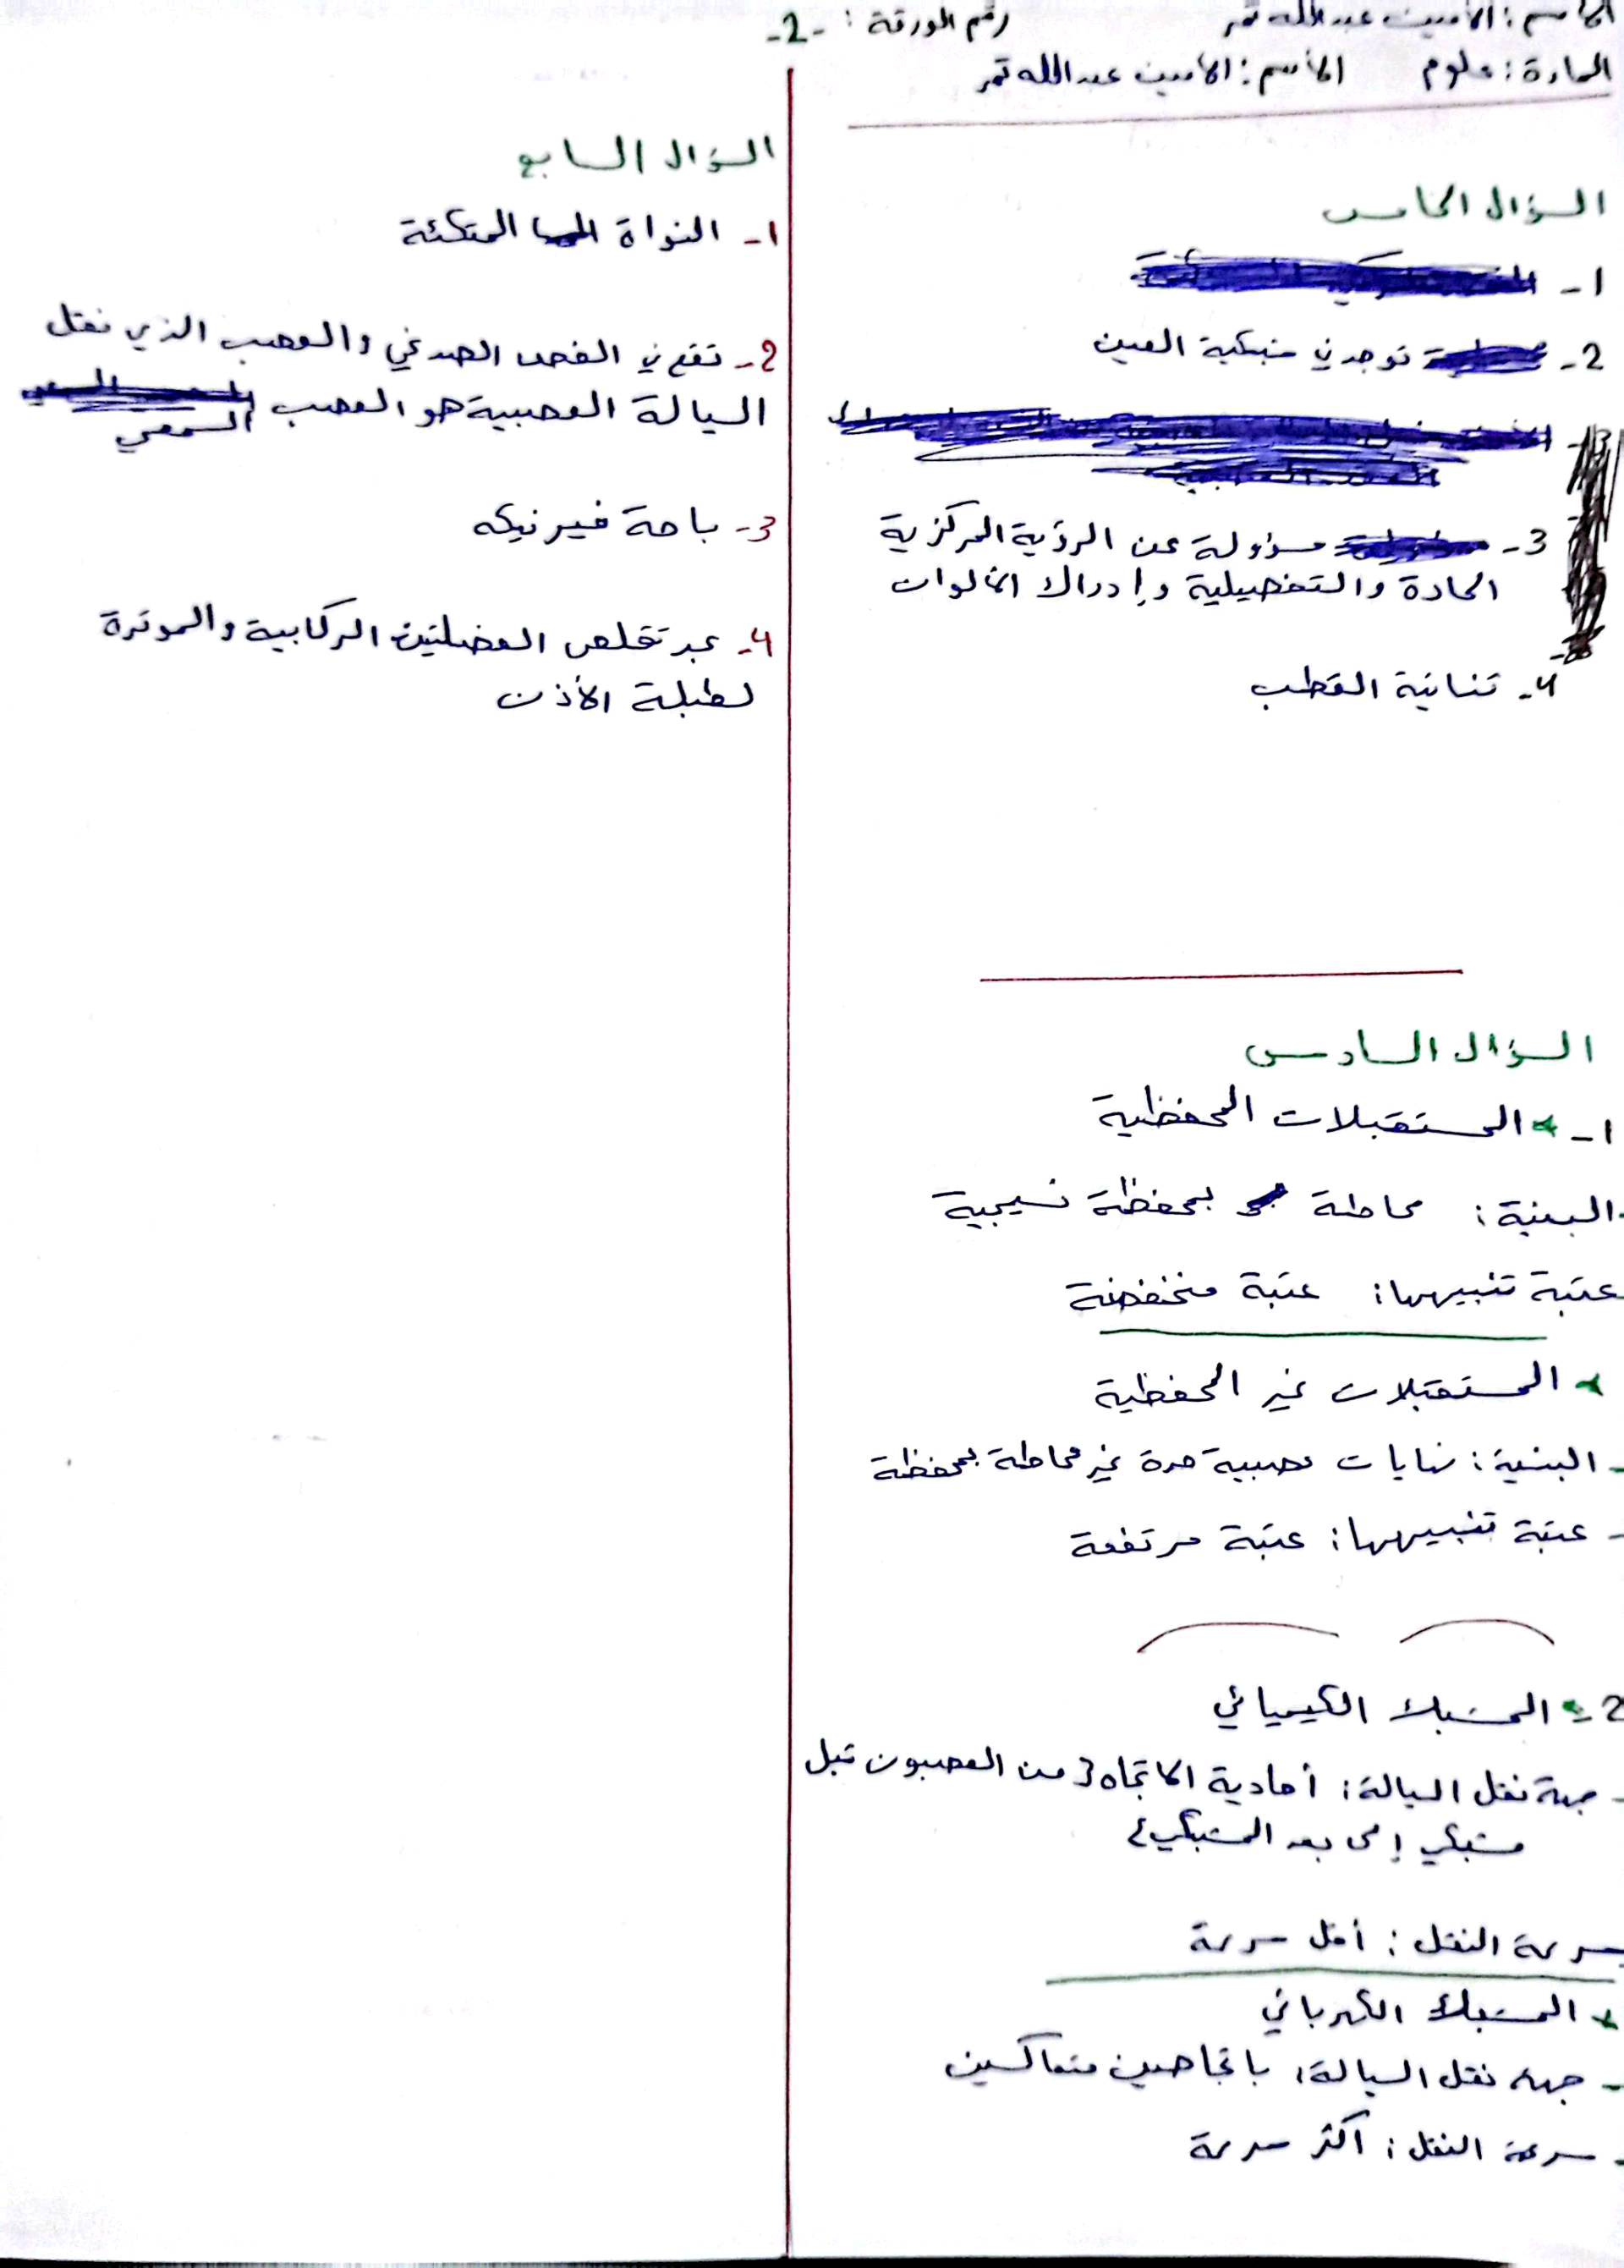 الاسم: الامين عبدالله تمر رقم الورقة: -2-
المادة: علوم الاسم: الامين عبدالله تمر
السؤال الخامس
1-
2- توجد في شبكية العين
3- مسؤولة عن الرؤية المركزية
الحادة والتفصيلية وإدراك الألوان
4- ثنائية القطب
السؤال السادس
1- المستقبلات المحفظية
البنية: محاطة بمحفظة نسيجية
عتبة تنبيهها: عتبة منخفضة
المستقبلات غير المحفظية
- البنية: نهايات عصبية حرة غير محاطة بمحفظة
- عتبة تنبيهها: عتبة مرتفعة
2- المشبك الكيميائي
- جهة نقل السيالة: أحادية الاتجاه من العصبون قبل
مشبكي إلى بعد المشبكي
سرعة النقل: أقل سرعة
المشبك الكهربائي
- جهة نقل السيالة: باتجاهين متعاكسين
- سرعة النقل: أكثر سرعة
السؤال السابع
1- النواة المتكئة
2- تقع في الفص الصدغي والعصب الذي نقل
السيالة العصبية هو العصب
السمعي
3- باحة فيرنيكه
4- عبر تقلص العضلتين الركابية والموترة
لطبلة الأذن